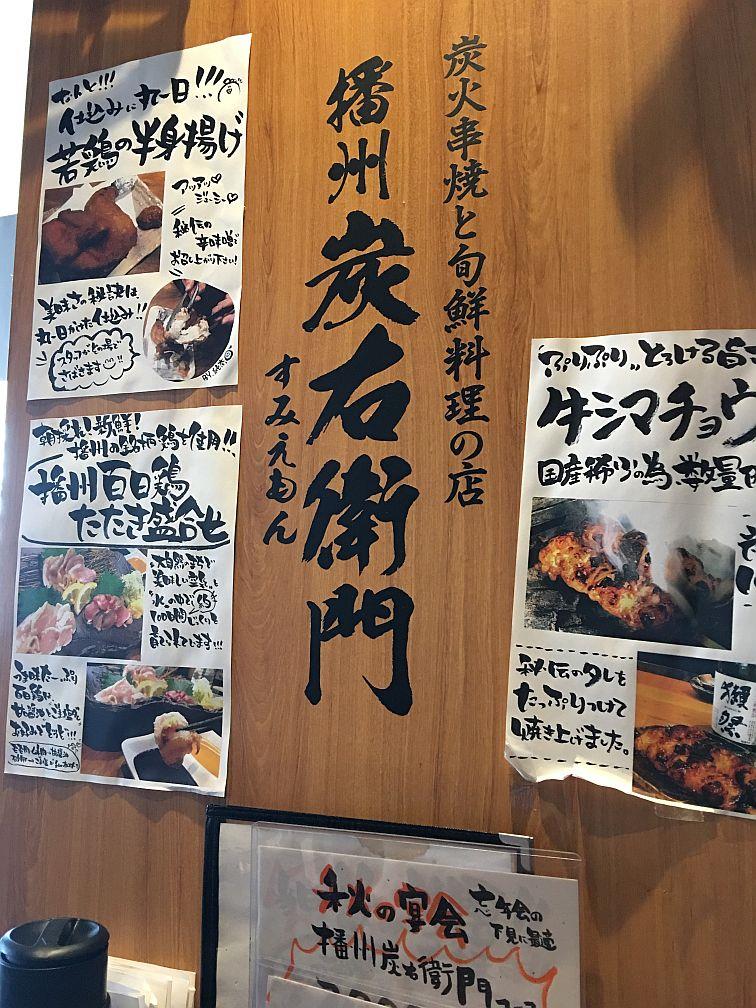 炭火串焼と旬鮮料理の店
播州炭右衛門
すみえもん
なんと!!!
仕込みに丸一日!!!
若鶏の半身揚げ
アツアツ♡
ジューシー♡
秘伝の
辛味噌で
お召し上がり下さい!
美味さの秘訣は、
丸一日かけた仕込み!!
スタッフがその場で
さばきます
朝採れ新鮮!
播州の銘柄鶏を使用!!
播州百日鶏
たたき盛合せ
大自然の
美味しい空気と
水の中で
100日間じっくりと
育てています!!!
百日鶏
ぷりぷり とろける旨
牛シマチョウ
国産
の為、数量
秘伝のタレを
たっぷりつけて
焼き上げました。
獺祭
秋の宴会
忘年会の
下見に最適
播州炭右衛門コース